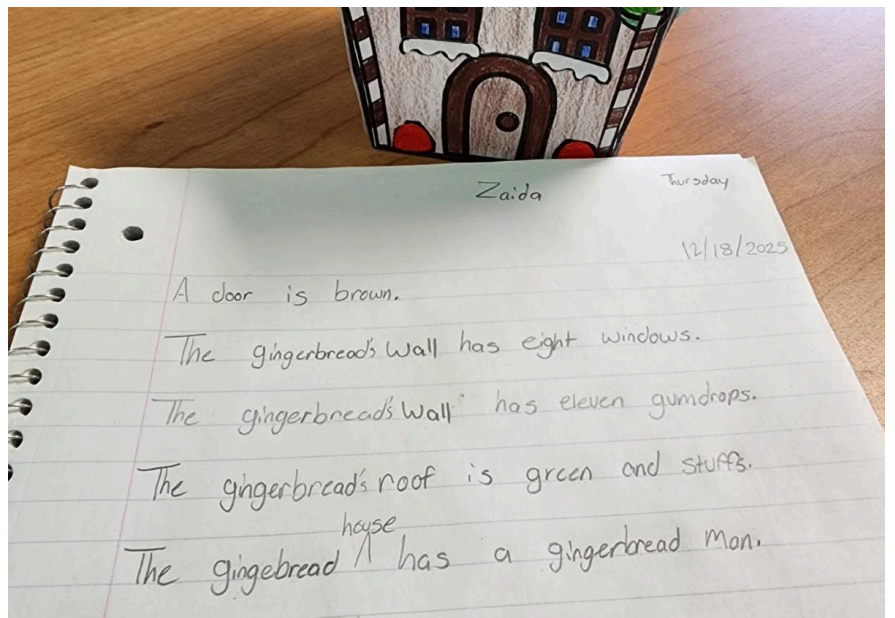 Zaida
Thursday
12/18/2025
A door is brown.
The gingerbread's wall has eight windows.
The gingerbread's wall has eleven gumdrops.
The gingerbread's roof is green and stuffs.
house
The gingebread ⋀ has a gingerbread man.